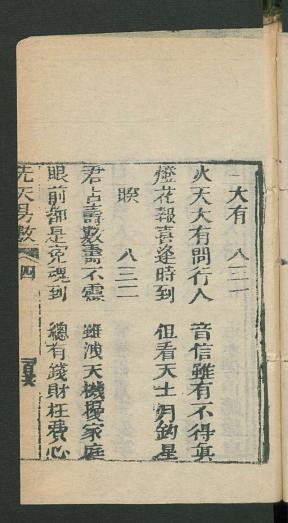 大有 八三一
火天大有問行人 音信雖有不得真
燈花報喜逢時到 但看天士月鈎星
睽 八三二
君占壽數壽不靈 雖洩天機擾家庭
眼前都是冤魂到 總有錢財枉費心
先天易數 四